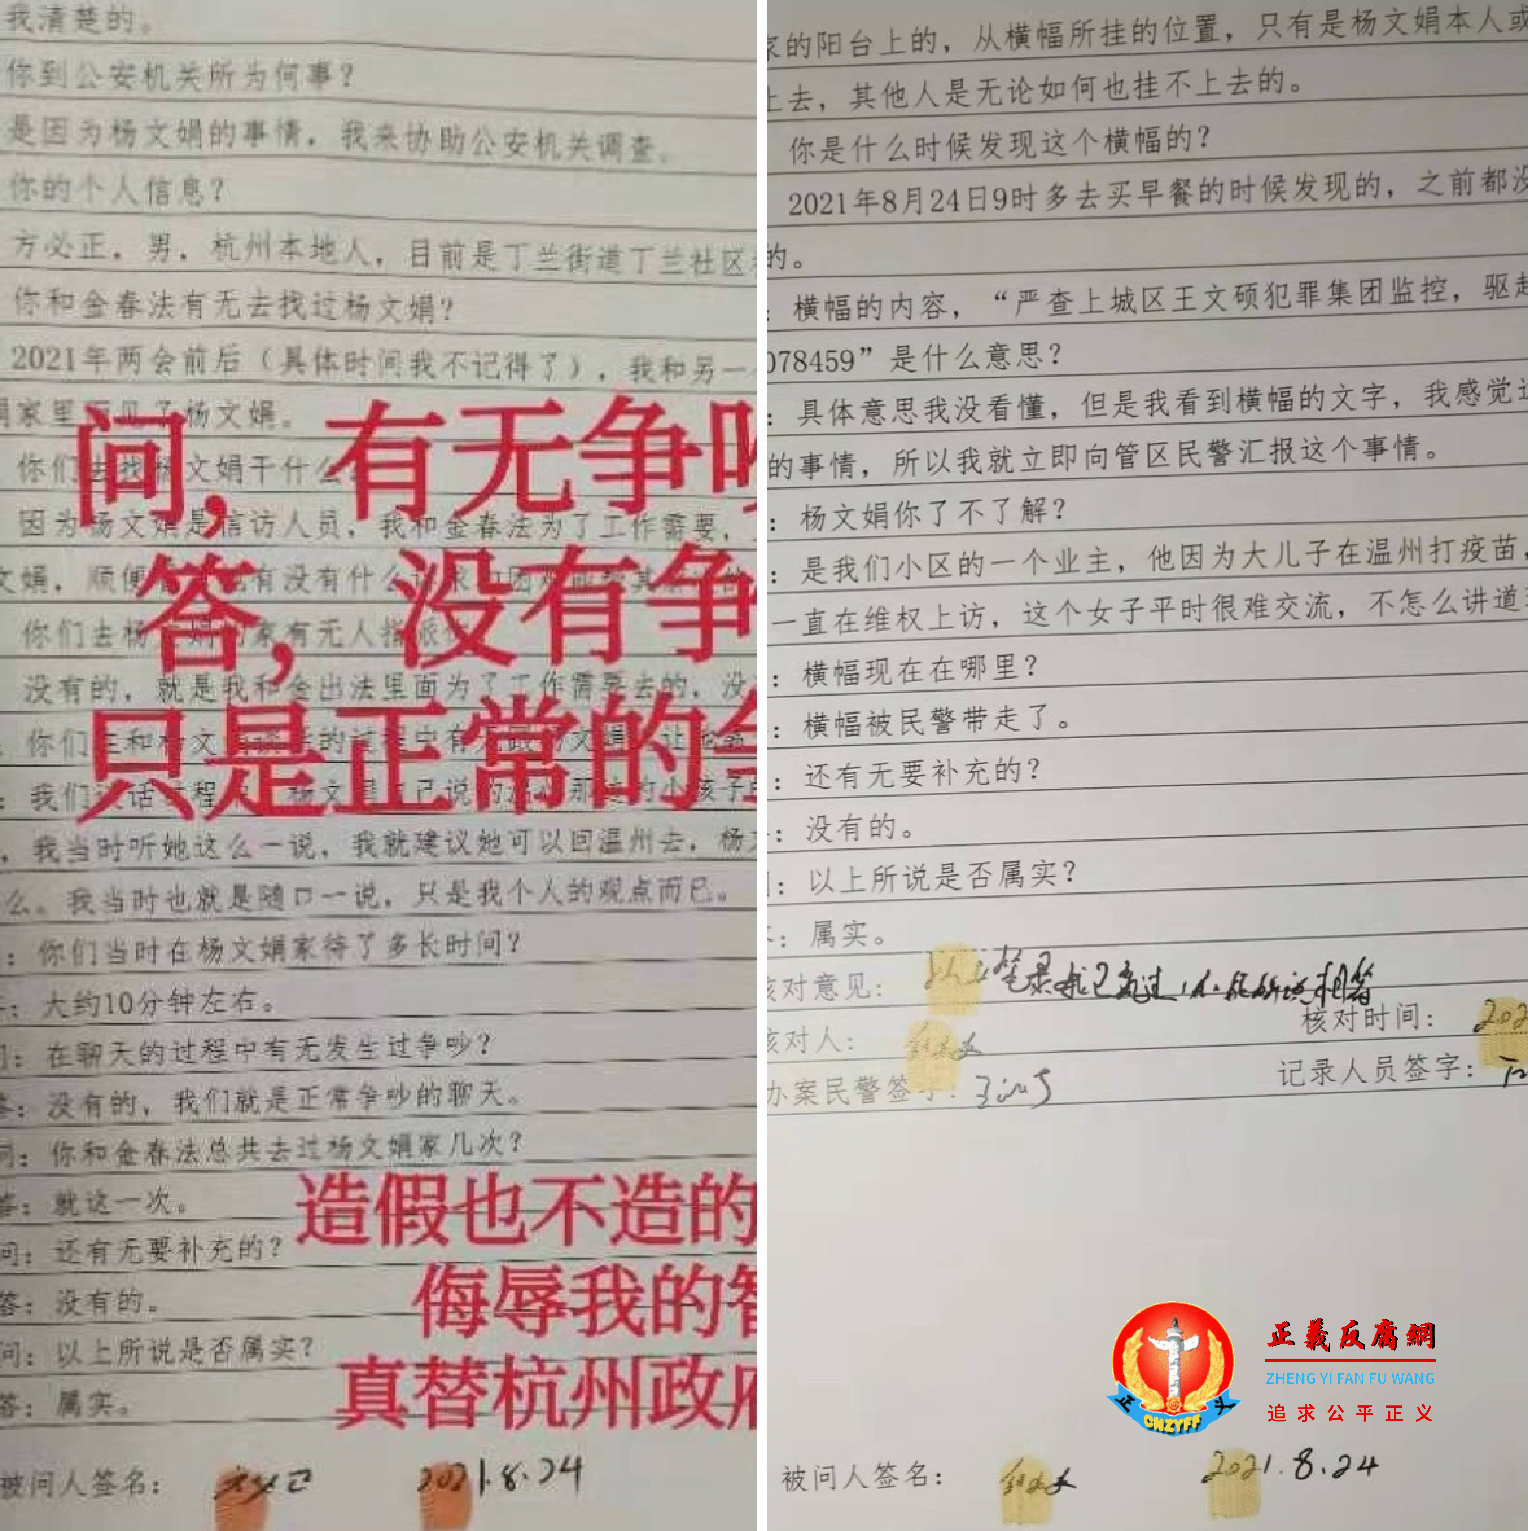 我清楚的。
你到公安机关所为何事？
是因为杨文娟的事情，我来协助公安机关调查。
你的个人信息？
方必正，男，杭州本地人，目前是丁兰街道丁兰社区
你和金春法有无去找过杨文娟？
2021年两会前后（具体时间我不记得了），我和另一
家里 见了杨文娟。
你们去找杨文娟干什么
因为杨文娟是信访人员，我和金春法为了工作需要，
文娟，顺便 有没有什么
你们去杨文娟的家有无人指派
没有的，就是我和金出法里面为了工作需要去的，没
你们在和杨文 的过程中有无
：我们 话 程 杨文 己说的 那 的小孩子
，我当时听她这么一说，我就建议她可以回温州去，杨
么。我当时也就是随口一说，只是我个人的观点而已。
：你们当时在杨文娟家待了多长时间？
：大约10分钟左右。
：在聊天的过程中有无发生过争吵？
答：没有的，我们就是正常争吵的聊天。
问：你和金春法总共去过杨文娟家几次？
答：就这一次。
问：还有无要补充的？
答：没有的。
问：以上所说是否属实？
答：属实。
被问人签名：
2021.8.24
问，有无争吵
答，没有争
只是正常的争
造假也不造的
侮辱我的智
真替杭州政府
家的阳台上的，从横幅所挂的位置，只有是杨文娟本人或
上去，其他人是无论如何也挂不上去的。
你是什么时候发现这个横幅的？
2021年8月24日9时多去买早餐的时候发现的，之前都没
的。
：横幅的内容，“严查上城区王文硕犯罪集团监控，驱赶
078459”是什么意思？
：具体意思我没看懂，但是我看到横幅的文字，我感觉这
的事情，所以我就立即向管区民警汇报这个事情。
：杨文娟你了不了解？
：是我们小区的一个业主，他因为大儿子在温州打疫苗，
一直在维权上访，这个女子平时很难交流，不怎么讲道
：横幅现在在哪里？
：横幅被民警带走了。
：还有无要补充的？
：没有的。
：以上所说是否属实？
：属实。
核对意见：以上笔录我已看过，和我所说相符
核对人：
核对时间：202
办案民警签字：
记录人员签字：
被问人签名：
2021.8.24
正義反腐網
ZHENG YI FAN FU WANG
追求公平正义
正 CNZYFF 义